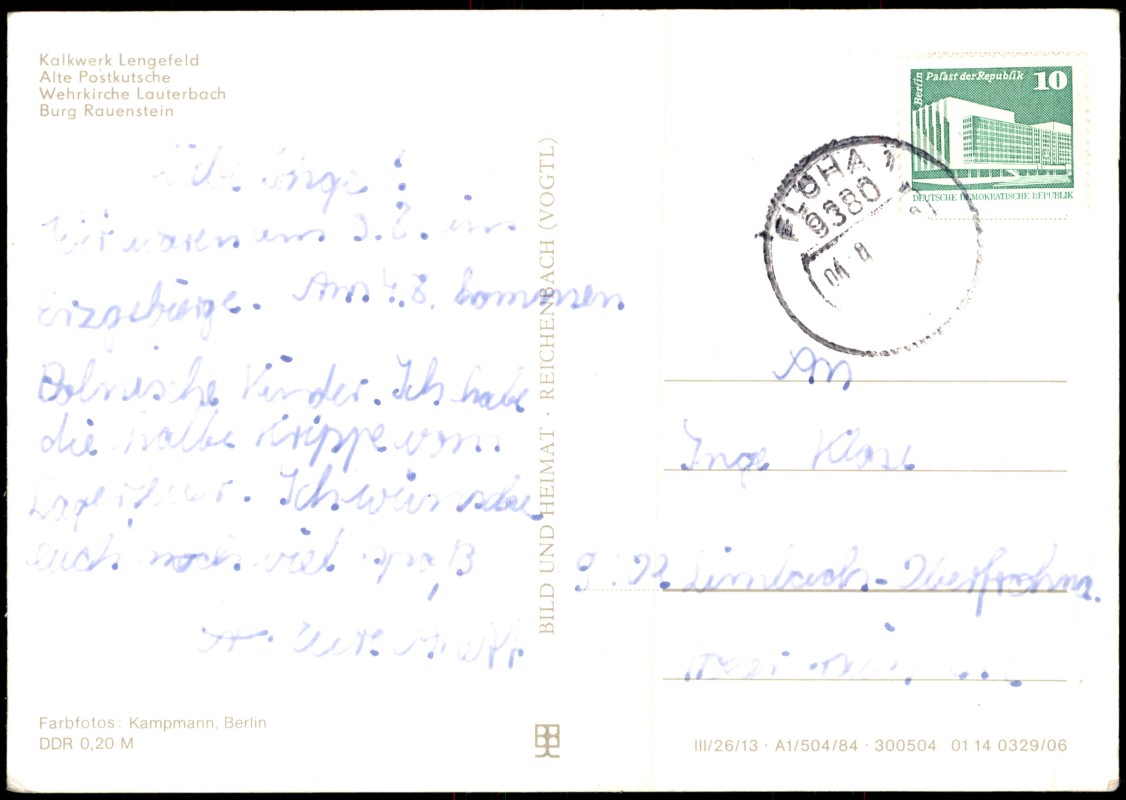 Kalkwerk Lengefeld
Alte Postkutsche
Wehrkirche Lauterbach
Burg Rauenstein
Inge!
Wir waren am 3.8. im
Erzgebirge. Am 4.8. kommen
Polnische Kinder. Ich habe
die halbe Krippe vom
Lagerfeuer. Ich wünsche
euch noch viel spaß
Farbfotos: Kampmann, Berlin
DDR 0,20 M
BILD UND HEIMAT · REICHENBACH (VOGTL)
Berlin Palast der Republik 10
DEUTSCHE DEMOKRATISCHE REPUBLIK
FLÖHA 1
9380
An
Inge Klose
Limbach-Oberfrohna.
III/26/13 · A1/504/84 · 300504 01 14 0329/06